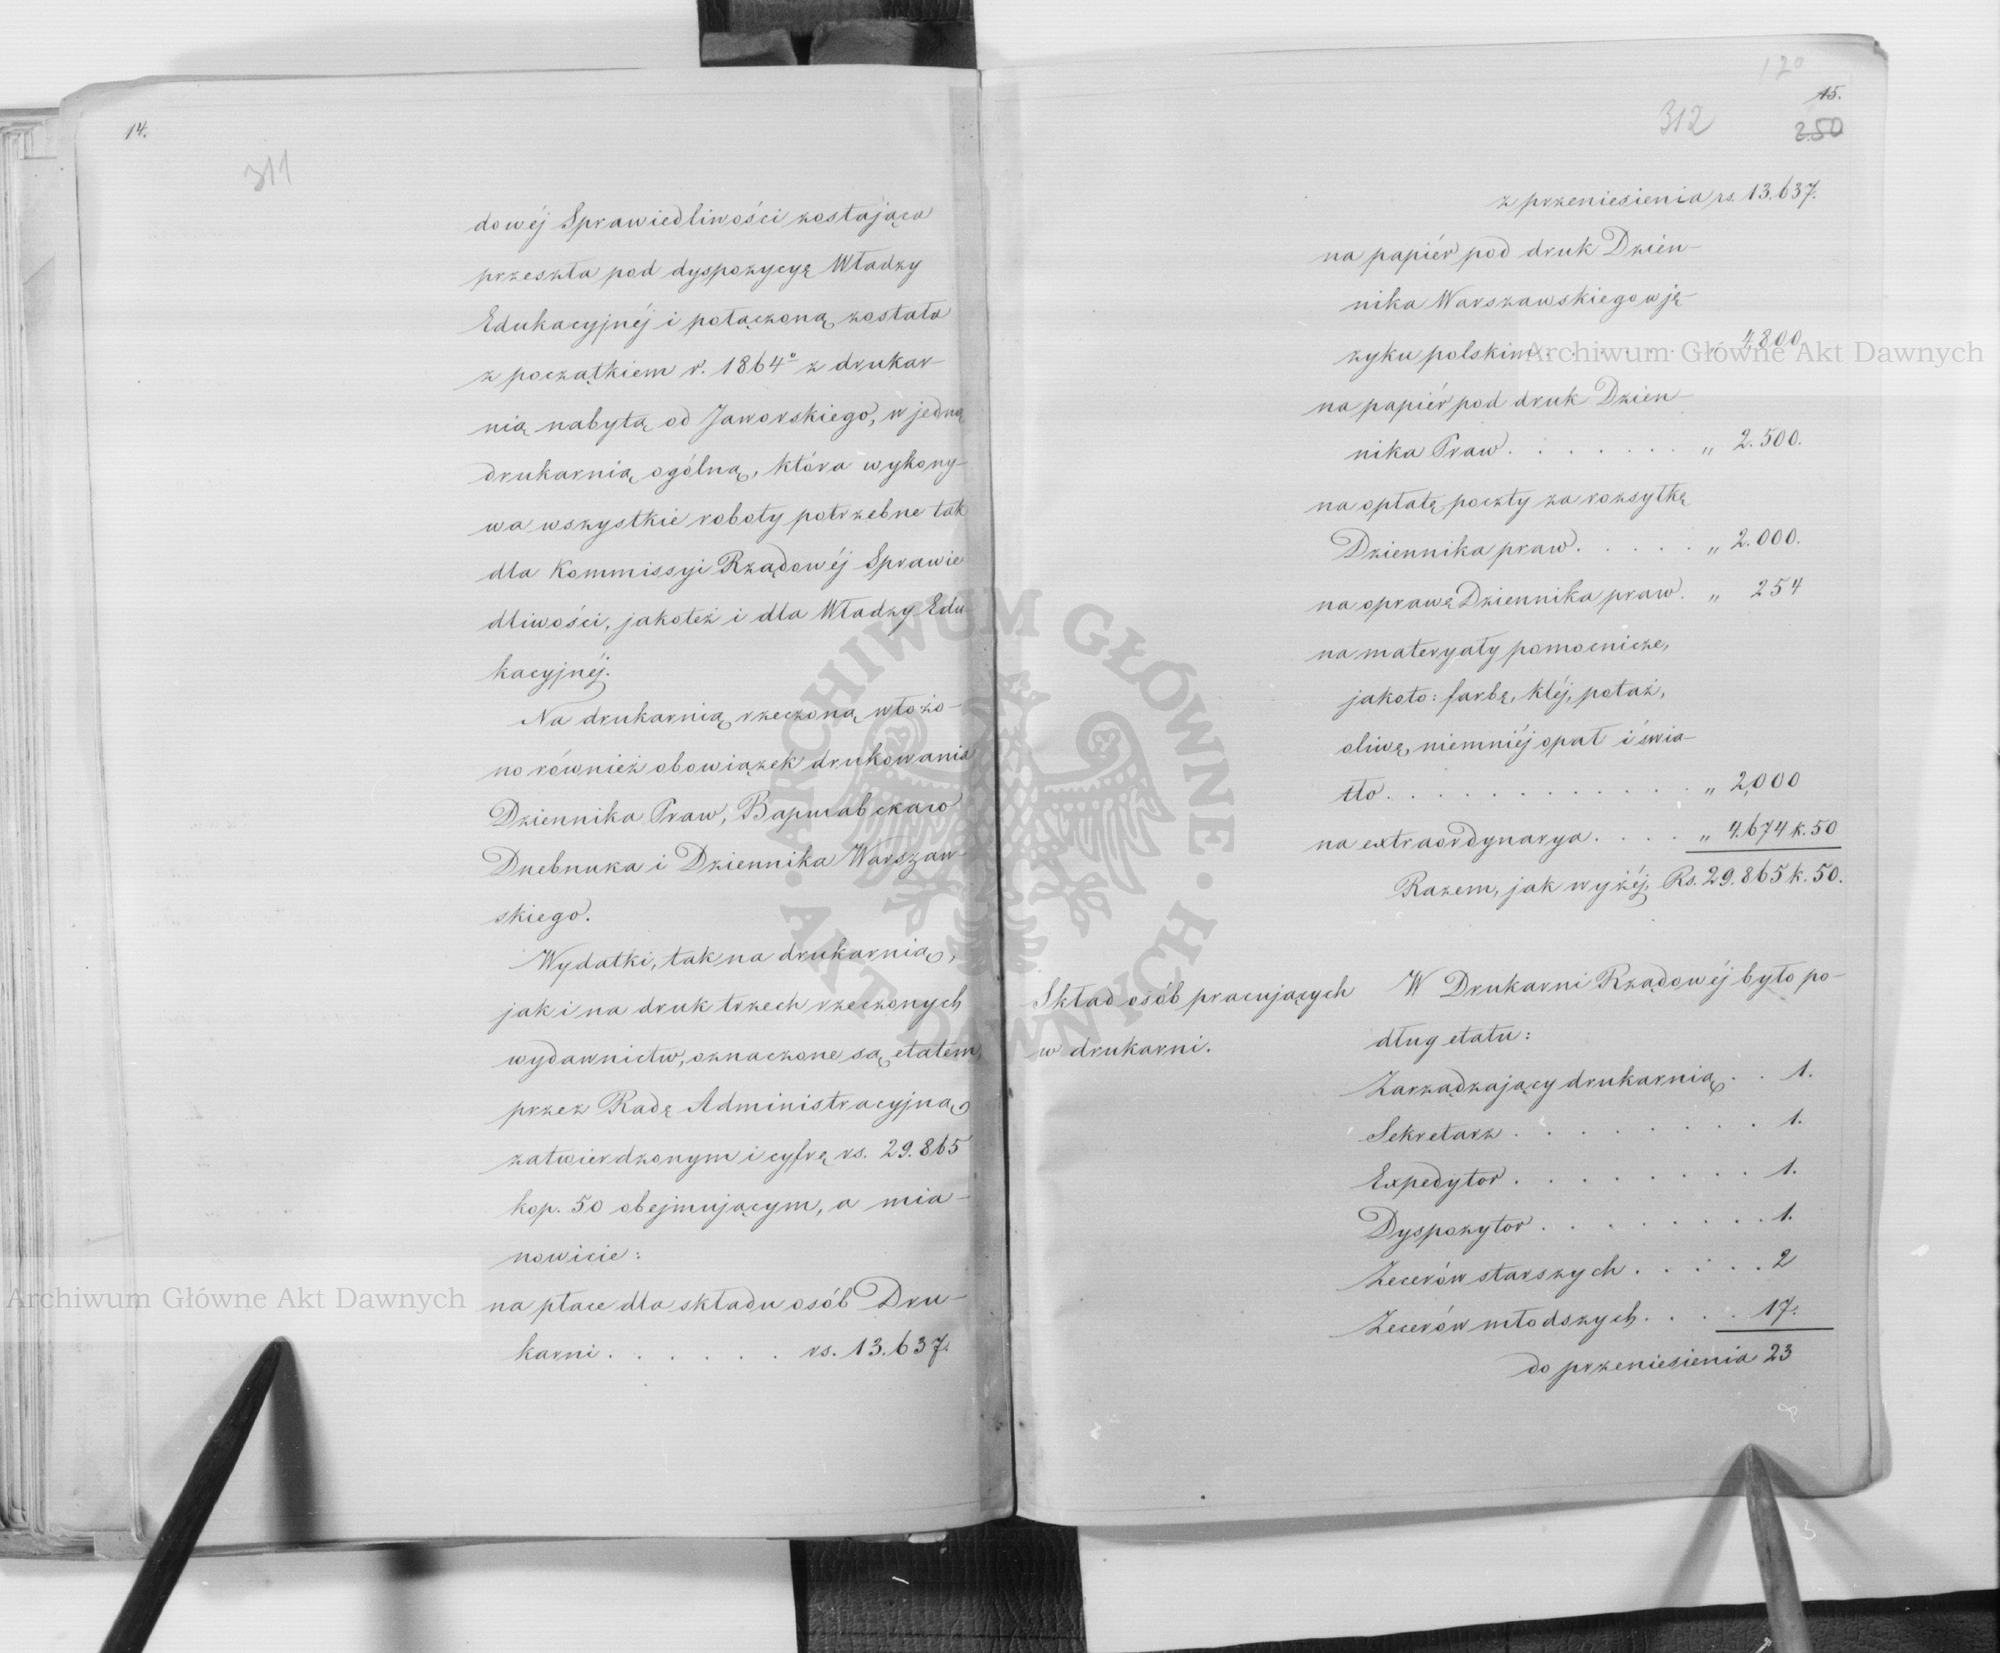 14.
311
dowéj Sprawiedliwości zostająca
przeszła pod dyspozycyą Władzy
Edukacyjnéj i połączoną została
z początkiem r. 1864º z drukar-
nią nabytą od Jaworskiego, w jedną
drukarnią ogólną, która wykony-
wa wszystkie roboty potrzebne tak
dla Kommissyi Rządowéj Sprawie
dliwości, jakoteż i dla Władzy Edu
kacyjnéj.
Na drukarnią rzeczoną włożo-
no również obowiązek drukowania
Dziennika Praw, Варшавскаго
Дневника i Dziennika Warszaw-
skiego.
Wydatki, tak na drukarnią,
jak i na druk trzech rzeczonych
wydawnictw, oznaczone są etatem,
przez Radę Administracyjną
zatwierdzonym i cyfrę rs. 29.865
kop. 50 obejmującym, a mia-
nowicie:
na płace dla składu osób Dru-
karni . . . . . . rs. 13.637.
120
15.
312
250
z przeniesienia rs. 13.637.
na papiér pod druk Dzien-
nika Warszawskiego w ję-
zyku polskim . . . . . . „ 4,800
na papiér pod druk Dzien-
nika Praw . . . . . . . „ 2.500.
na opłatę poczty za rozsyłkę
Dziennika praw . . . . . „ 2.000.
na oprawę Dziennika praw . „ 254
na materyały pomocnicze,
jakoto: farbę, kléj, potaż,
oliwę, niemniéj opał i świa-
tło . . . . . . . . . . . „ 2,000
na extraordynarya . . . . „ 4.674 k. 50
Razem, jak wyżéj, Rs. 29.865 k. 50.
Skład osób pracujących
w drukarni.
W Drukarni Rządowéj było po-
dług etatu:
Zarządzający drukarnią . . 1.
Sekretarz . . . . . . . . . 1.
Expedytor . . . . . . . . 1.
Dyspozytor . . . . . . . . 1.
Zecerów starszych . . . . . 2
Zecerów młodszych . . . . 17.
do przeniesienia 23
Archiwum Główne Akt Dawnych
Archiwum Główne Akt Dawnych
ARCHIWUM GŁÓWNE · AKT DAWNYCH ·